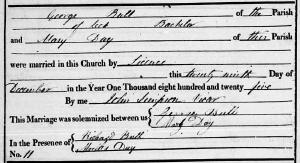 George Bull of the Parish
of Bachelor
and Mary Day of this Parish
were married in this Church by Licence
this twenty ninth Day of
December in the Year One Thousand eight hundred and twenty five
By me John Simpson Vicar
This Marriage was solemnized between us { George Bull
Mary Day
In the Presence of { Richard Bull
Day
No. 11